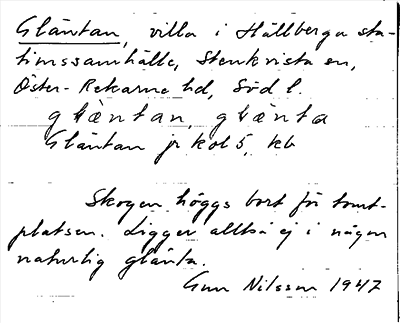 Gläntan, villa i Hållberga sta-
tionssamhälle, Stenkvista sn,
Öster-Rekarne hd, Södl.
glæntan, glænta
Gläntan jr kol 5, kb
Skogen höggs bort för tomt-
platsen. Ligger alltså ej i någon
naturlig glänta.
Gun Nilsson 1947